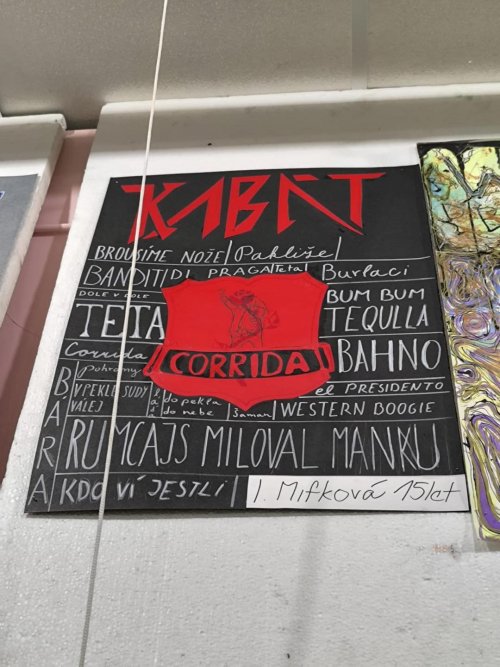 KABÁT
BROUSÍME NOŽE Pakliže
BANDITI DI PRAGA Teta Burlaci
DOLE V DOLE
BUM BUM
TETA
TEQULLA
Corrida
CORRIDA
BAHNO
Pohromy
BÁRA
V PEKLE SUDY VÁLEJ
do pekla
do nebe
Šaman
el PRESIDENTO
WESTERN BOOGIE
RUMCAJS MILOVAL MANKU
KDO VÍ JESTLI
I. Mifková 15 let